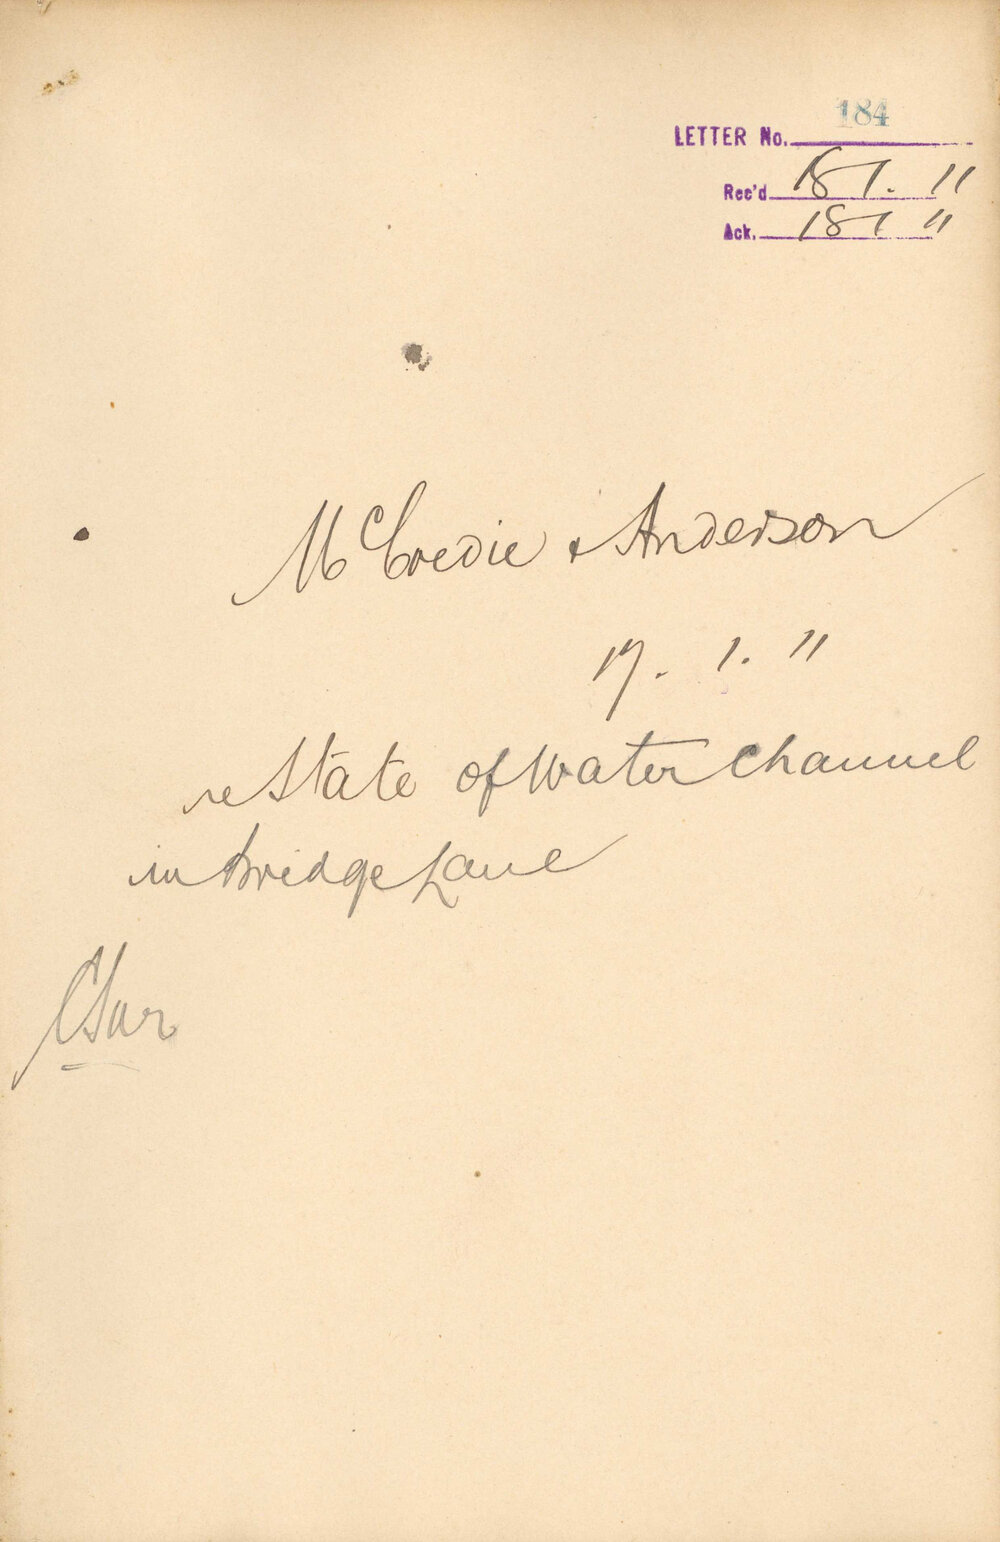 184
LETTER No.
Rec'd 18 1. 11
Ack. 18 1 11
McCredie & Anderson
17. 1. 11
re State of Water Channel
in Bridge Lane
CSur